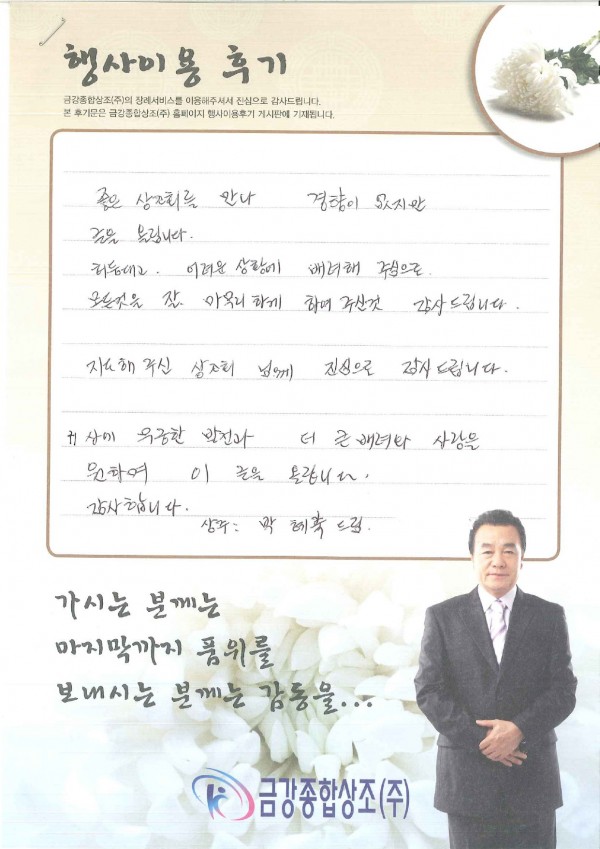 행사이용 후기
금강종합상조(주)의 장례서비스를 이용해주셔서 진심으로 감사드립니다.
본 후기문은 금강종합상조(주) 홈페이지 행사이용후기 게시판에 기재됩니다.
좋은 상조회를 만나 경황이 없지만
글을 올립니다.
힘든데고. 어려운 상황에 배려해 주심으로.
모든것을 잘. 마무리 하게 하여 주신것 감사드립니다.
지도해 주신 상조회 님께 진심으로 감사드립니다.
귀사에 무궁한 발전과 더 큰 배려와 사랑을
원하여 이 글을 올립니다.
감사합니다.
상주: 박 혜 드림.
가시는 분께는
마지막까지 품위를
보내시는 분께는 감동을...
금강종합상조(주)